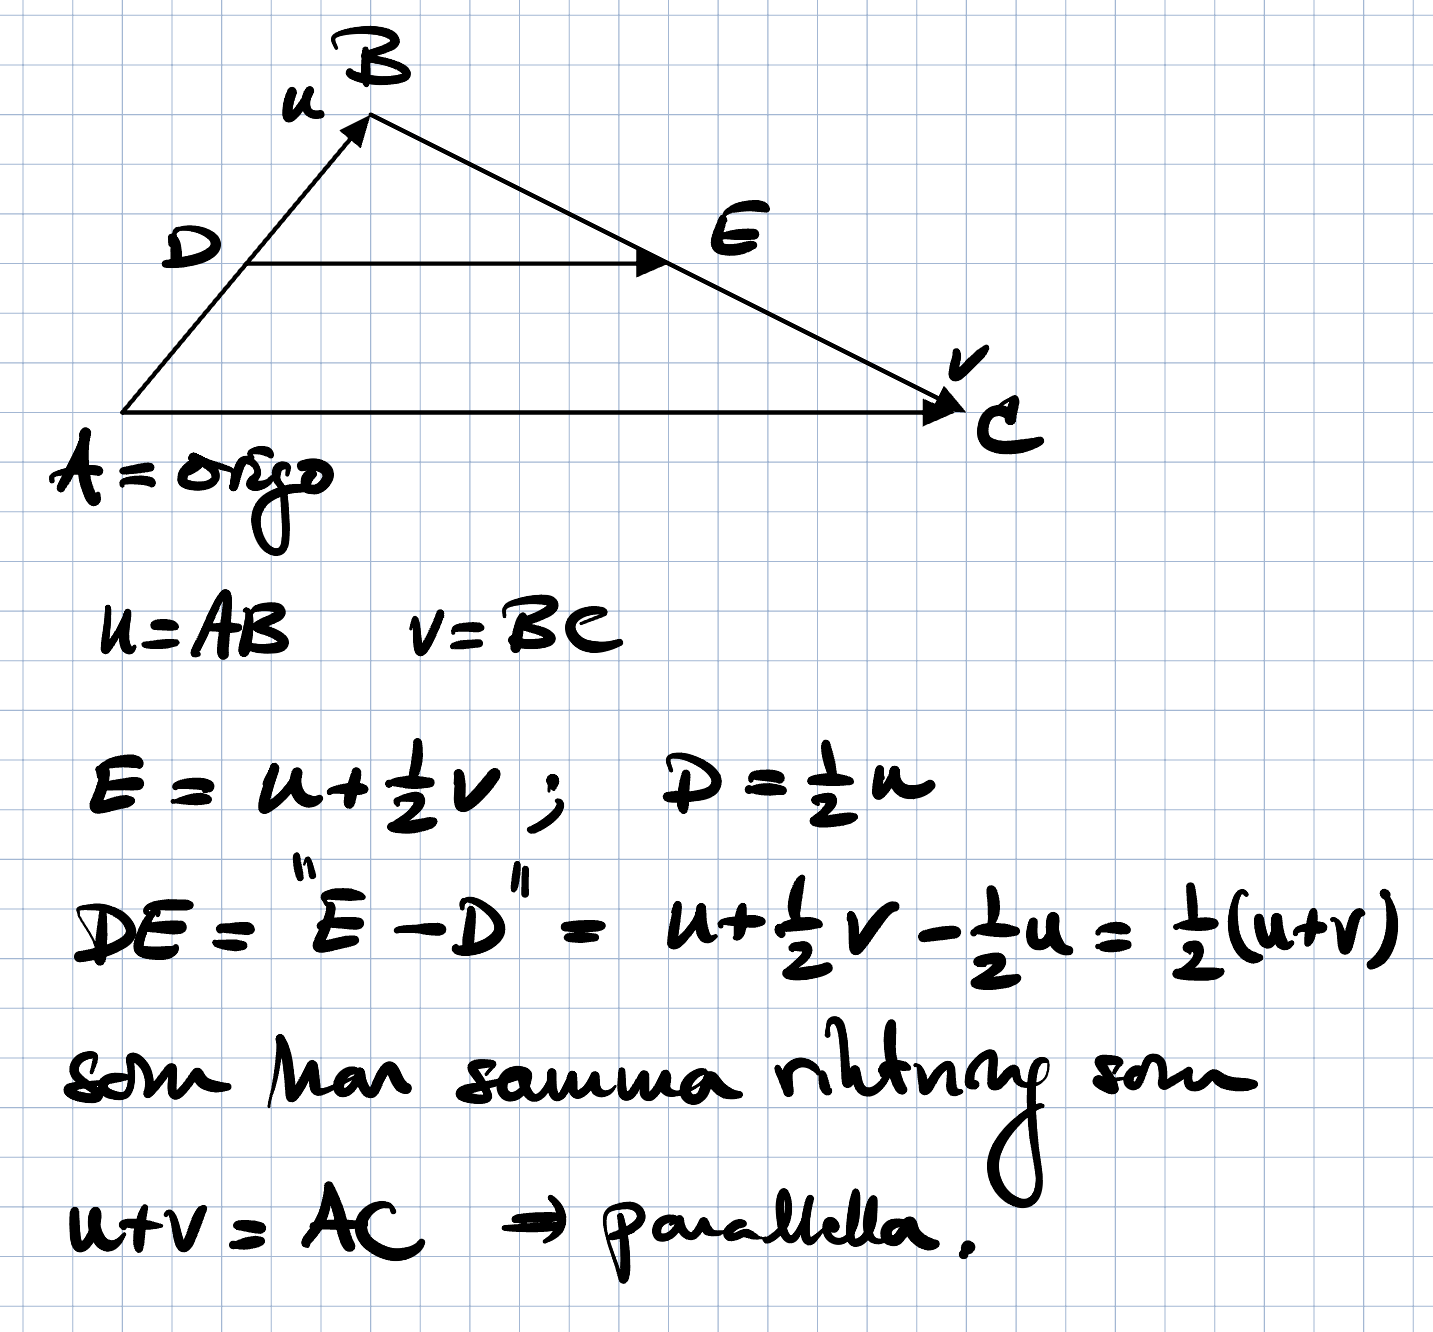 B
u
D
E
v
C
A = origo
u = AB v = BC
E = u + 1/2 v ; D = 1/2 u
DE = "E - D" = u + 1/2 v - 1/2 u = 1/2 (u+v)
som har samma riktning som
u+v = AC ⇒ parallella.